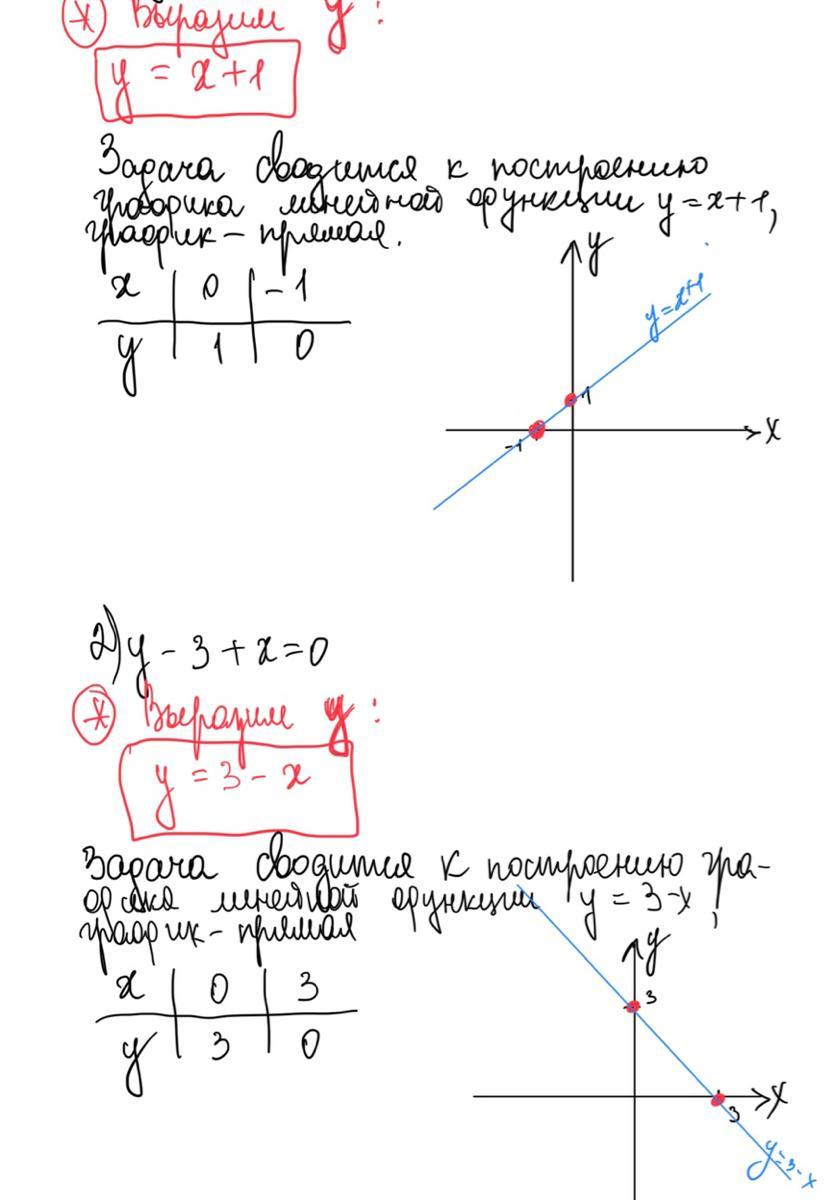 * Выразим y:
y = x+1
Задача сводится к построению
графика линейной функции y=x+1,
график – прямая.
x 0 -1
y 1 0
y
y=x+1
1
x
-1
2) y - 3 + x = 0
* Выразим y:
y = 3 - x
Задача сводится к построению гра-
фика линейной функции y = 3-x,
график – прямая
x 0 3
y 3 0
y
3
x
3
y=3-x